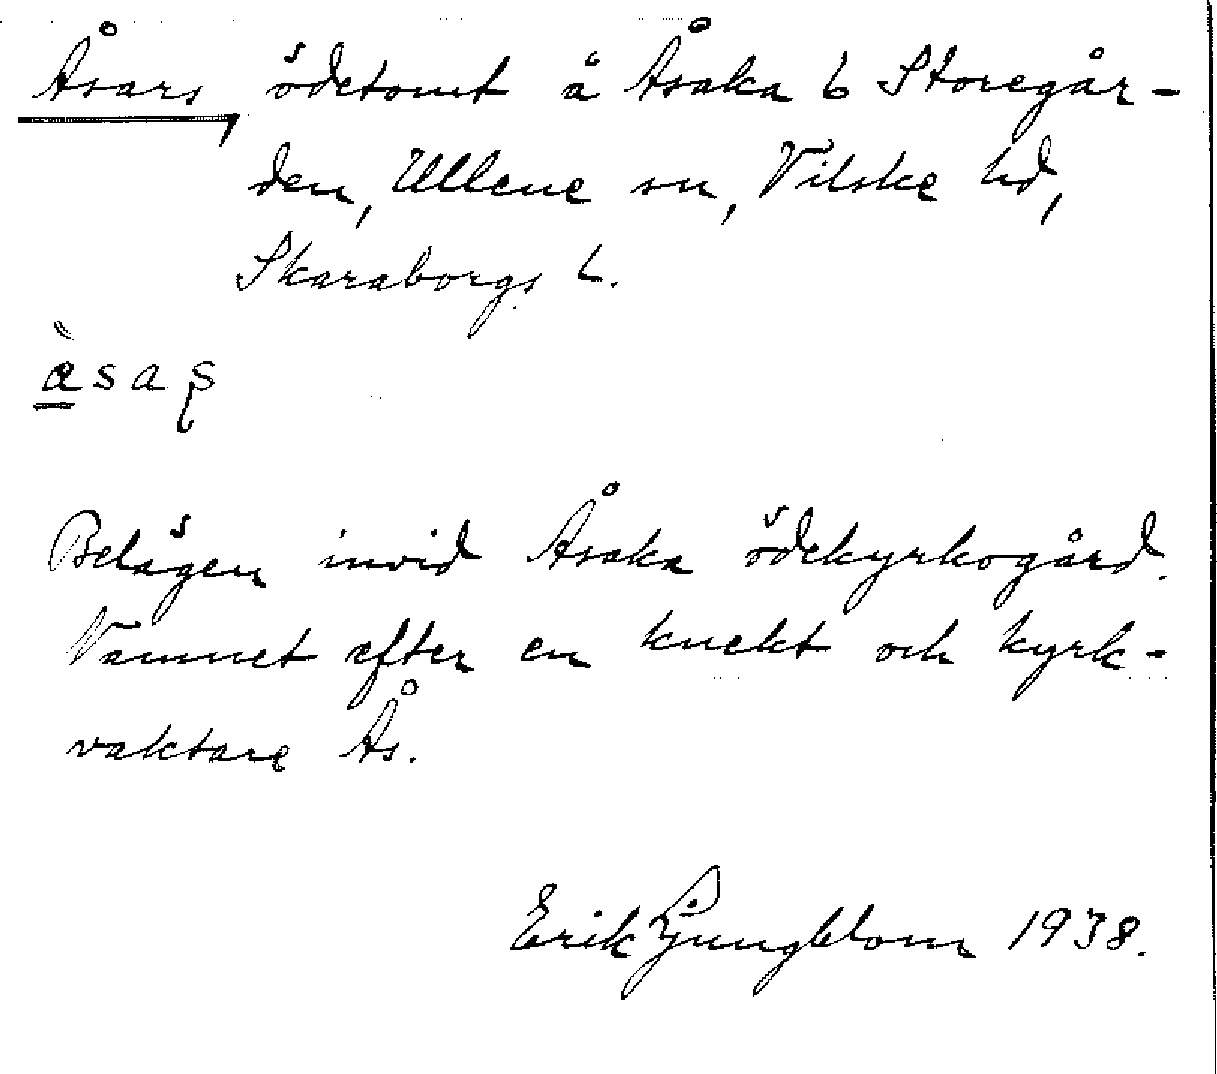 Åsars, ödetomt å Åsaka 6 Storegår-
den, Ullene sn, Vilske hd,
Skaraborgs l.
Belägen invid Åsaka ödekyrkogård.
Namnet efter en knekt och kyrk-
vaktare Ås.
Erik Ljungblom 1938.